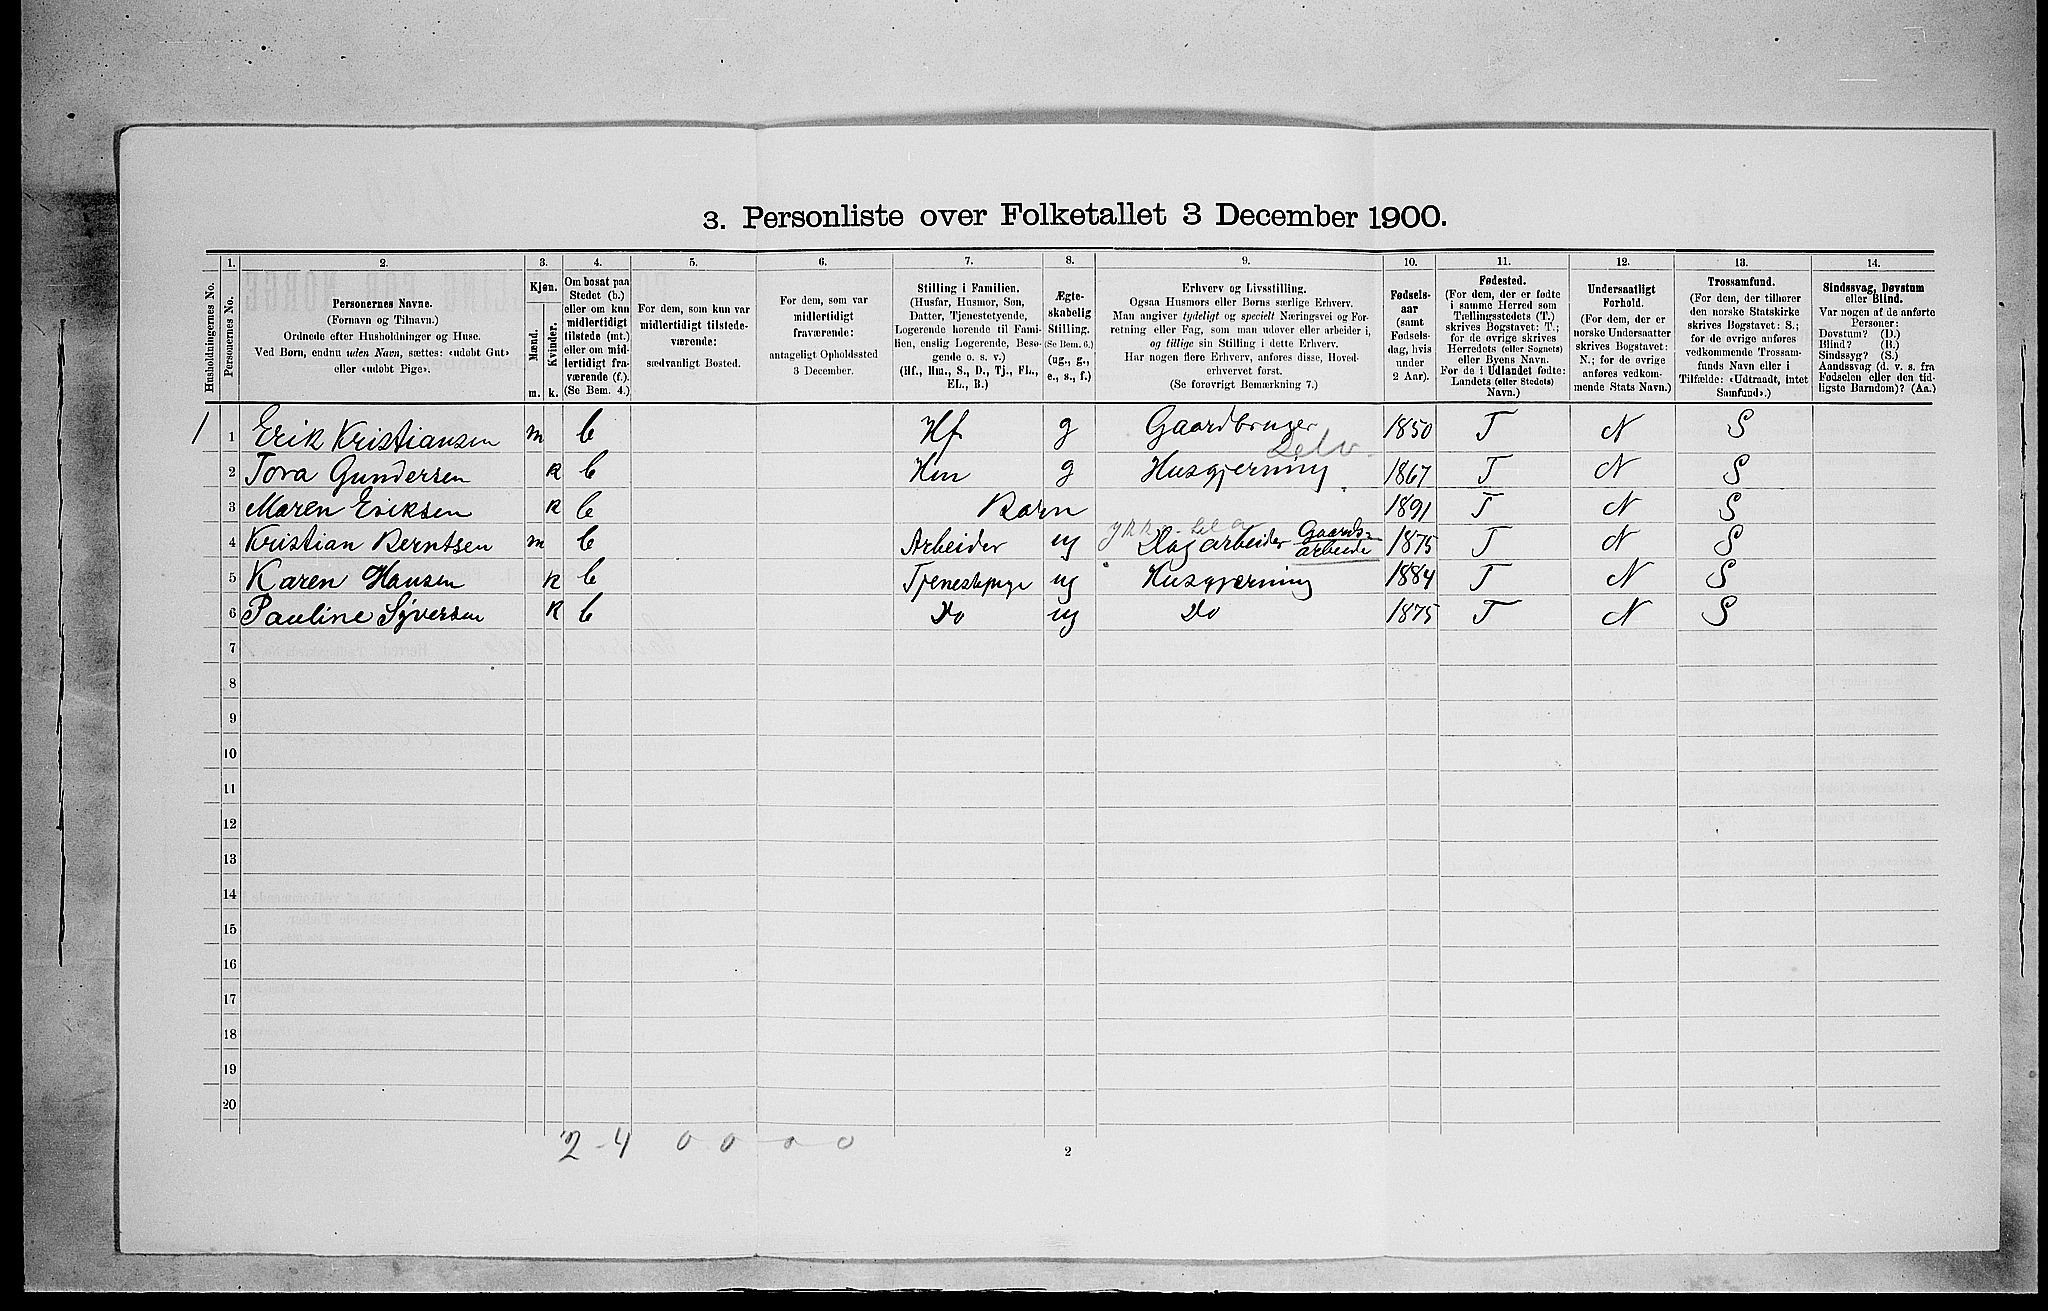 3. Personliste over Folketallet 3 December 1900.
1. 2. 3. 4. 5. 6. 7. 8. 9. 10. 11. 12. 13. 14.
Husholdningernes No.
Personernes No.
Personernes Navne.
(Fornavn og Tilnavn.)
Ordnede efter Husholdninger og Huse.
Ved Børn, endnu uden Navn, sættes: «udøbt Gut»
eller «udøbt Pige».
Kjøn.
Mænd.
Kvinder.
m. k.
Om bosat paa
Stedet (b.)
eller om kun
midlertidigt
tilstede (mt.)
eller om mid-
lertidigt fra-
værende (f.).
(Se Bem. 4.)
For dem, som kun var
midlertidigt tilstede-
værende:
sædvanligt Bosted.
For dem, som var
midlertidigt
fraværende:
antageligt Opholdssted
3 December.
Stilling i Familien.
(Husfar, Husmor, Søn,
Datter, Tjenestetyende,
Logerende hørende til Fami-
lien, enslig Logerende, Besø-
gende o. s. v.)
(Hf., Hm., S., D., Tj., FL.,
EL., B.)
Ægte-
skabelig
Stilling.
(Se Bem. 6.)
(ug., g.,
e., s., f.)
Erhverv og Livsstilling.
Ogsaa Husmors eller Børns særlige Erhverv.
Man angiver tydeligt og specielt Næringsvei og For-
retning eller Fag, som man udøver eller arbeider i,
og tillige sin Stilling i dette Erhverv.
Har nogen flere Erhverv, anføres disse, Hoved-
erhvervet først.
(Se forøvrigt Bemærkning 7.)
Fødsels-
aar
(samt
Fødsels-
dag, hvis
under
2 Aar).
Fødested.
(For dem, der er fødte
i samme Herred som
Tællingsstedets (T.)
skrives Bogstavet: T.;
for de øvrige skrives
Herredets (eller Sognets)
eller Byens Navn.
For de i Udlandet fødte:
Landets (eller Stedets)
Navn.)
Undersaatligt
Forhold.
(For dem, der er
norske Undersaatter
skrives Bogstavet:
N.; for de øvrige
anføres vedkom-
mende Stats Navn.)
Trossamfund.
(For dem, der tilhører
den norske Statskirke
skrives Bogstavet: S.;
for de øvrige anføres
vedkommende Trossam-
funds Navn eller i
Tilfælde: «Udtraadt, intet
Samfund».)
Sindssvag, Døvstum
eller Blind.
Var nogen af de anførte
Personer:
Døvstum? (D.)
Blind? (B.)
Sindssyg? (S.)
Aandssvag (d. v. s. fra
Fødselen eller den tid-
ligste Barndom)? (Aa.)
1 1 Erik Kristiansen m b Hf g Gaardbruger Selv 1850 T N S
2 Tora Gundersen k b Hm g Husgjerning 1867 T N S
3 Maren Eriksen k b Barn 1891 T N S
4 Kristian Berntsen m b Arbeider ug Dagarbeider Gaards-arbeide 1875 T N S
5 Karen Hansen k b Tjenestepige ug Husgjærning 1884 T N S
6 Pauline Syversen k b Do ug Do 1875 T N S
7
8
9
10
11
12
13
14
15
16
17
18
19
20
2-4 0 0 - 0 - 0
2